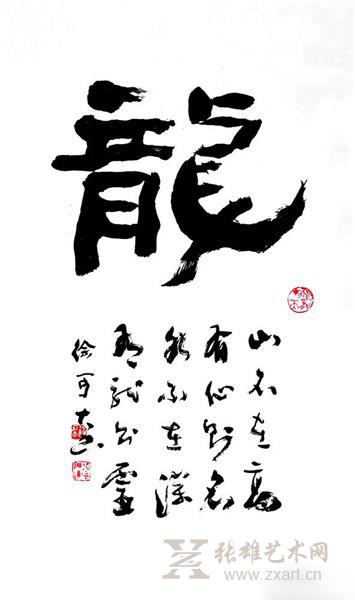 龍
山不在高
有仙则名
水不在深
有龍则靈
徐可
张雄艺术网
www.zxart.cn